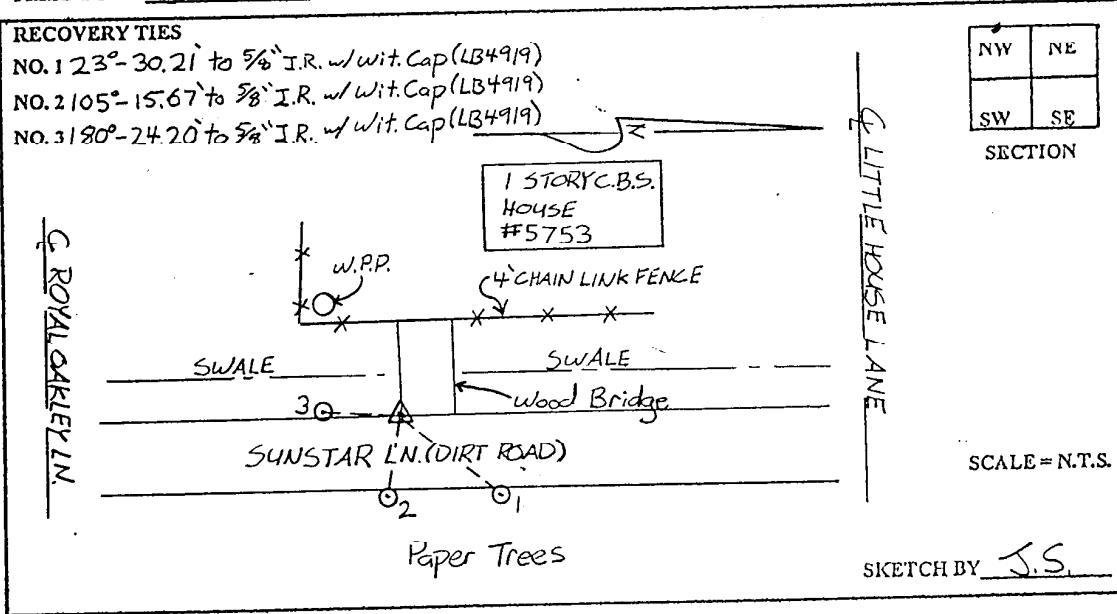 RECOVERY TIES
NO. 1 23°-30.21' to 5/8" I.R. w/ Wit. Cap (LB4919)
NO. 2 105°-15.67' to 5/8" I.R. w/ Wit. Cap (LB4919)
NO. 3 180°-24.20' to 5/8" I.R. w/ Wit. Cap (LB4919)
NW NE
SW SE
SECTION
N
1 STORY C.B.S.
HOUSE
#5753
℄ LITTLE HOUSE LANE
℄ ROYAL OAKLEY LN.
W.P.P.
4' CHAIN LINK FENCE
SWALE
SWALE
Wood Bridge
3
SUNSTAR LN. (DIRT ROAD)
SCALE = N.T.S.
2
1
Paper Trees
SKETCH BY J.S.